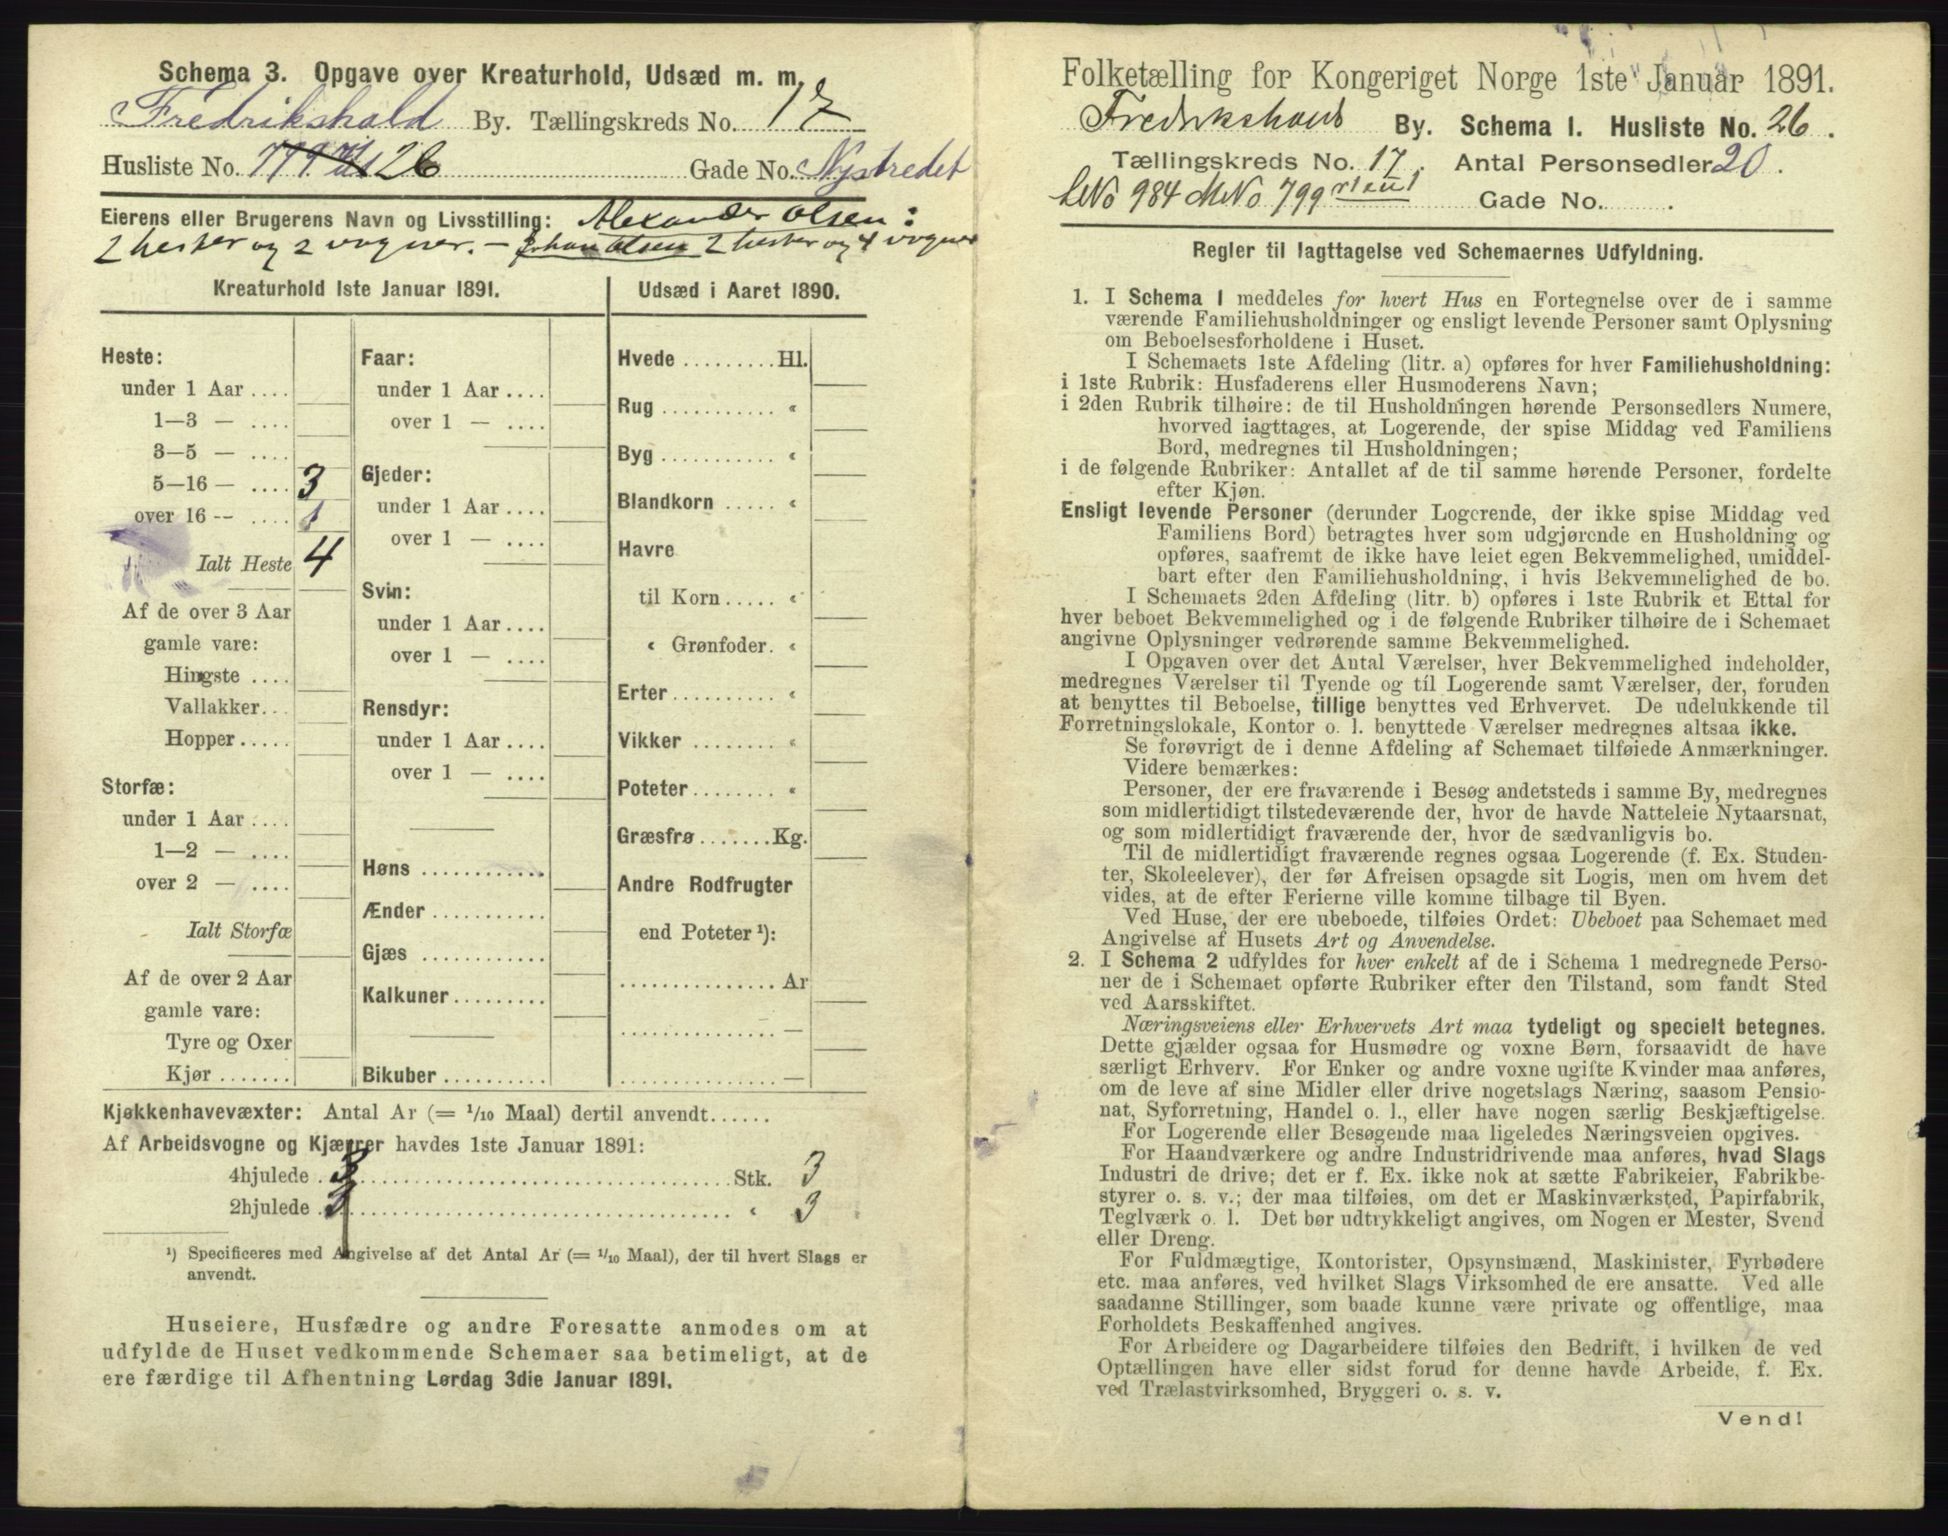 Schema 3. Opgave over Kreaturhold, Udsæd m. m.
Fredrikshald By. Tællingskreds No. 17
Husliste No. 26 Gade No. Nystredet
Eierens eller Brugerens Navn og Livsstilling: Alexander Olsen:
2 hester og 2 vogner. – Johan Olsen 2 hester og 4 vogner
Kreaturhold 1ste Januar 1891.
Heste:
under 1 Aar ....
1—3 — ....
3—5 — ....
5—16 — .... 3
over 16 -- .... 1
Ialt Heste 4
Af de over 3 Aar
gamle vare:
Hingste ....
Vallakker...
Hopper.....
Storfæ:
under 1 Aar ....
1—2 — ....
over 2 — ....
Ialt Storfæ
Af de over 2 Aar
gamle vare:
Tyre og Oxer
Kjør .......
Faar:
under 1 Aar ....
over 1 — ....
Gjeder:
under 1 Aar ....
over 1 — ....
Svin:
under 1 Aar ....
over 1 — ....
Rensdyr:
under 1 Aar ....
over 1 — ....
Høns ............
Ænder ...........
Gjæs ............
Kalkuner.........
Bikuber ..........
Udsæd i Aaret 1890.
Hvede .........Hl.
Rug ........... «
Byg ........... «
Blandkorn ..... «
Havre
til Korn..... «
« Grønfoder. «
Erter .......... «
Vikker ......... «
Poteter ........ «
Græsfrø .......Kg.
Andre Rodfrugter
end Poteter ¹):
............... Ar
............... —
............... —
Kjøkkenhavevæxter: Antal Ar (= 1/10 Maal) dertil anvendt......
Af Arbeidsvogne og Kjærrer havdes 1ste Januar 1891:
4hjulede ... 3 ... Stk. 3
2hjulede ... 3 ... « 3
¹) Specificeres med Angivelse af det Antal Ar (= 1/10 Maal), der til hvert Slags er
anvendt.
Huseiere, Husfædre og andre Foresatte anmodes om at
udfylde de Huset vedkommende Schemaer saa betimeligt, at de
ere færdige til Afhentning Lørdag 3die Januar 1891.
Folketælling for Kongeriget Norge 1ste Januar 1891.
Fredrikshald By. Schema 1. Husliste No. 26.
Tællingskreds No. 17. Antal Personsedler 20.
LNo 984 MNo 799 Gade No. .
Regler til Iagttagelse ved Schemaernes Udfyldning.
1. I Schema 1 meddeles for hvert Hus en Fortegnelse over de i samme
værende Familiehusholdninger og ensligt levende Personer samt Oplysning
om Beboelsesforholdene i Huset.
I Schemaets 1ste Afdeling (litr. a) opføres for hver Familiehusholdning:
i 1ste Rubrik: Husfaderens eller Husmoderens Navn;
i 2den Rubrik tilhøire: de til Husholdningen hørende Personsedlers Numere,
hvorved iagttages, at Logerende, der spise Middag ved Familiens
Bord, medregnes til Husholdningen;
i de følgende Rubriker: Antallet af de til samme hørende Personer, fordelte
efter Kjøn.
Ensligt levende Personer (derunder Logerende, der ikke spise Middag ved
Familiens Bord) betragtes hver som udgjørende en Husholdning og
opføres, saafremt de ikke have leiet egen Bekvemmelighed, umiddel-
bart efter den Familiehusholdning, i hvis Bekvemmelighed de bo.
I Schemaets 2den Afdeling (litr. b) opføres i 1ste Rubrik et Ettal for
hver beboet Bekvemmelighed og i de følgende Rubriker tilhøire de i Schemaet
angivne Oplysninger vedrørende samme Bekvemmelighed.
I Opgaven over det Antal Værelser, hver Bekvemmelighed indeholder,
medregnes Værelser til Tyende og til Logerende samt Værelser, der, foruden
at benyttes til Beboelse, tillige benyttes ved Erhvervet. De udelukkende til
Forretningslokale, Kontor o. l. benyttede Værelser medregnes altsaa ikke.
Se forøvrigt de i denne Afdeling af Schemaet tilføiede Anmærkninger.
Videre bemærkes:
Personer, der ere fraværende i Besøg andetsteds i samme By, medregnes
som midlertidigt tilstedeværende der, hvor de havde Natteleie Nytaarsnat,
og som midlertidigt fraværende der, hvor de sædvanligvis bo.
Til de midlertidigt fraværende regnes ogsaa Logerende (f. Ex. Studen-
ter, Skoleelever), der før Afreisen opsagde sit Logis, men om hvem det
vides, at de efter Ferierne ville komme tilbage til Byen.
Ved Huse, der ere ubeboede, tilføies Ordet: Ubeboet paa Schemaet med
Angivelse af Husets Art og Anvendelse.
2. I Schema 2 udfyldes for hver enkelt af de i Schema 1 medregnede Perso-
ner de i Schemaet opførte Rubriker efter den Tilstand, som fandt Sted
ved Aarsskiftet.
Næringsveiens eller Erhvervets Art maa tydeligt og specielt betegnes.
Dette gjælder ogsaa for Husmødre og voxne Børn, forsaavidt de have
særligt Erhverv. For Enker og andre voxne ugifte Kvinder maa anføres,
om de leve af sine Midler eller drive nogetslags Næring, saasom Pensio-
nat, Syforretning, Handel o. l., eller have nogen særlig Beskjæftigelse.
For Logerende eller Besøgende maa ligeledes Næringsveien opgives.
For Haandværkere og andre Industridrivende maa anføres, hvad Slags
Industri de drive; det er f. Ex. ikke nok at sætte Fabrikeier, Fabrikbe-
styrer o. s. v.; der maa tilføies, om det er Maskinværksted, Papirfabrik,
Teglværk o. l. Det bør udtrykkeligt angives, om Nogen er Mester, Svend
eller Dreng.
For Fuldmægtige, Kontorister, Opsynsmænd, Maskinister, Fyrbødere
etc. maa anføres, ved hvilket Slags Virksomhed de ere ansatte. Ved alle
saadanne Stillinger, som baade kunne være private og offentlige, maa
Forholdets Beskaffenhed angives.
For Arbeidere og Dagarbeidere tilføies den Bedrift, i hvilken de ved
Optællingen have eller sidst forud for denne havde Arbeide, f. Ex.
ved Trælastvirksomhed, Bryggeri o. s. v.
Vend!